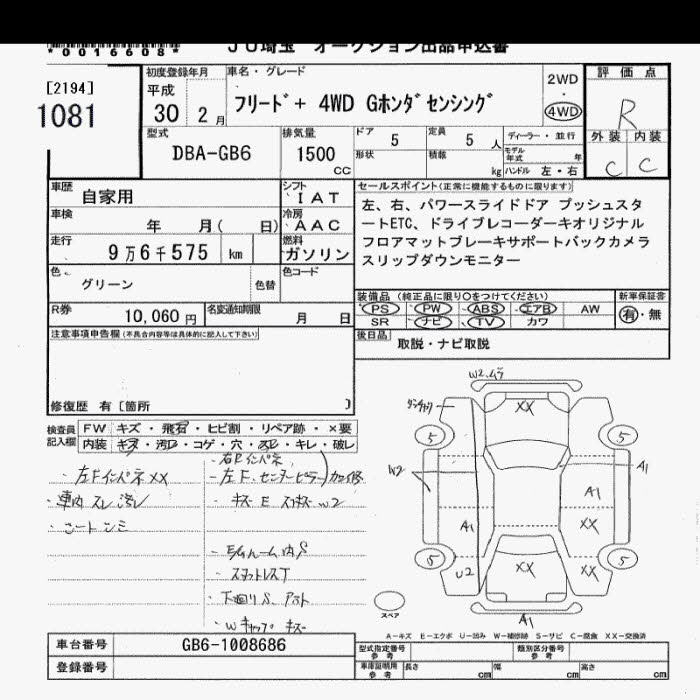 *0016608*
JU埼玉 オークション出品申込書
[2194]
1081
初度登録年月
平成
30 2月
車名・グレード
フリード+ 4WD Gホンダセンシング
2WD
・
4WD
評価点
R
外装 内装
C C
型式
DBA-GB6
排気量
1500
CC
ドア 5
定員 5 人
形状
積載 kg
ディーラー・並行
モデル年式 年
ハンドル 左・右
車歴
自家用
シフト
IAT
車検
年 月( 日)
冷房
AAC
走行
9万6千575 km
燃料
ガソリン
色
グリーン
色替
色コード
R券
10,060円
名変通知期限
月 日
セールスポイント(正常に機能するものに限ります)
左、右、パワースライドドア プッシュスタ
ートETC、ドライブレコーダーキオリジナル
フロアマットブレーキサポートバックカメラ
スリップダウンモニター
装備品 (純正品に限り○をつけてください)
PS PW ABS エアB AW
SR ナビ TV カワ
新車保証書
有・無
後日品
取説・ナビ取説
注意事項申告欄(不具合内容等は具体的に記入して下さい)
修復歴 有 [箇所 ]
検査員
記入欄
FW キズ・飛石・ヒビ割・リペア跡・×要
内装 キズ・汚れ・コゲ・穴・スレ・キレ・破レ
・左Fインパネ XX
・車内 スレ 汚レ
・右Rインパネ
・左F、センターピラー
キズ E W2
・E/gルーム内 S
・スタットレスT
・下廻りS、
・Wキャップ キズ
W2
XX
5
5
W2
A1
A1
A1
XX
5
5
U2
XX
XX
A1
スペア
A-キズ E-エクボ U-凹み W-補修跡 S-サビ C-腐食 XX-交換済
車台番号
GB6-1008686
登録番号
型式指定番号
参考
類別区分番号
参考
車庫証明用
参考
長さ cm
幅 cm
高さ cm